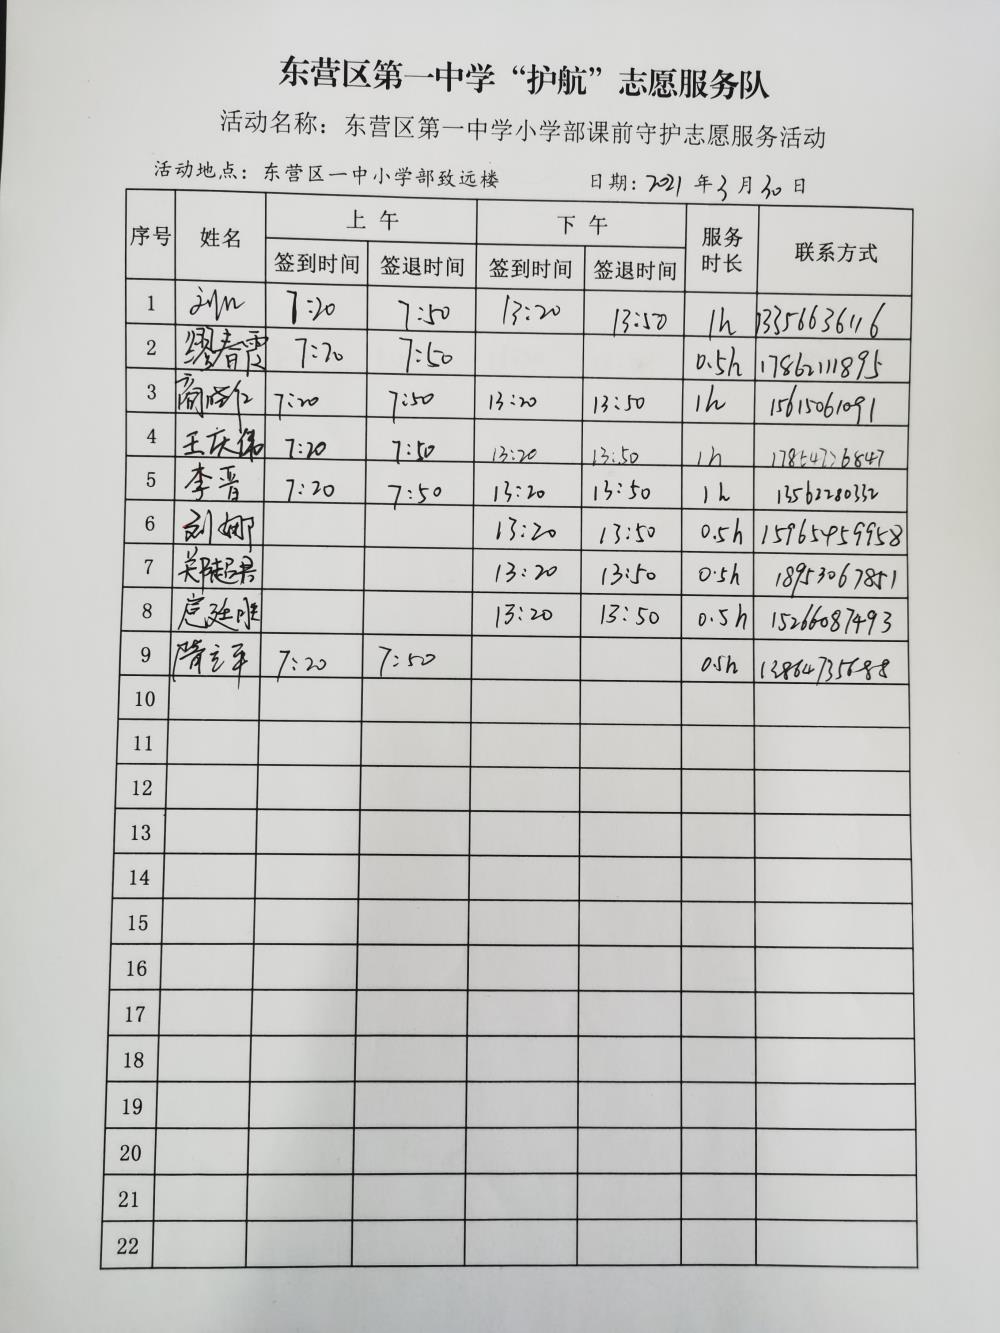 东营区第一中学“护航”志愿服务队
活动名称：东营区第一中学小学部课前守护志愿服务活动
活动地点：东营区一中小学部致远楼 日期：2021年3月30日
序号 姓名 上午 下午 服务时长 联系方式
签到时间 签退时间 签到时间 签退时间
1 7:20 7:50 13:20 13:50 1h 13356636116
2 缪春霞 7:20 7:50 0.5h 17862111895
3 7:20 7:50 13:20 13:50 1h 15615061091
4 王庆伟 7:20 7:50 13:20 13:50 1h
5 李晋 7:20 7:50 13:20 13:50 1h 13562280332
6 刘娜 13:20 13:50 0.5h 15965459958
7 郑超君 13:20 13:50 0.5h 18953067851
8 13:20 13:50 0.5h 15266087493
9 隋立军 7:20 7:50 0.5h 13864735688
10
11
12
13
14
15
16
17
18
19
20
21
22